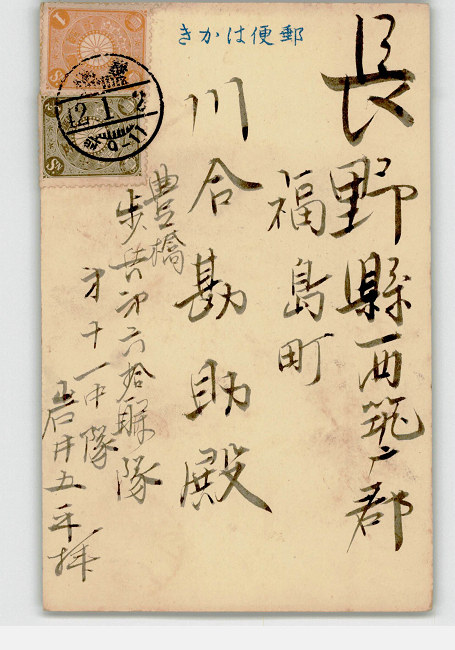 きかは便郵
長野縣西筑广郡
福島町
川合勘助殿
豊橋
歩兵第六拾聯隊
第十一中隊
岩井五平拝
42 1 2